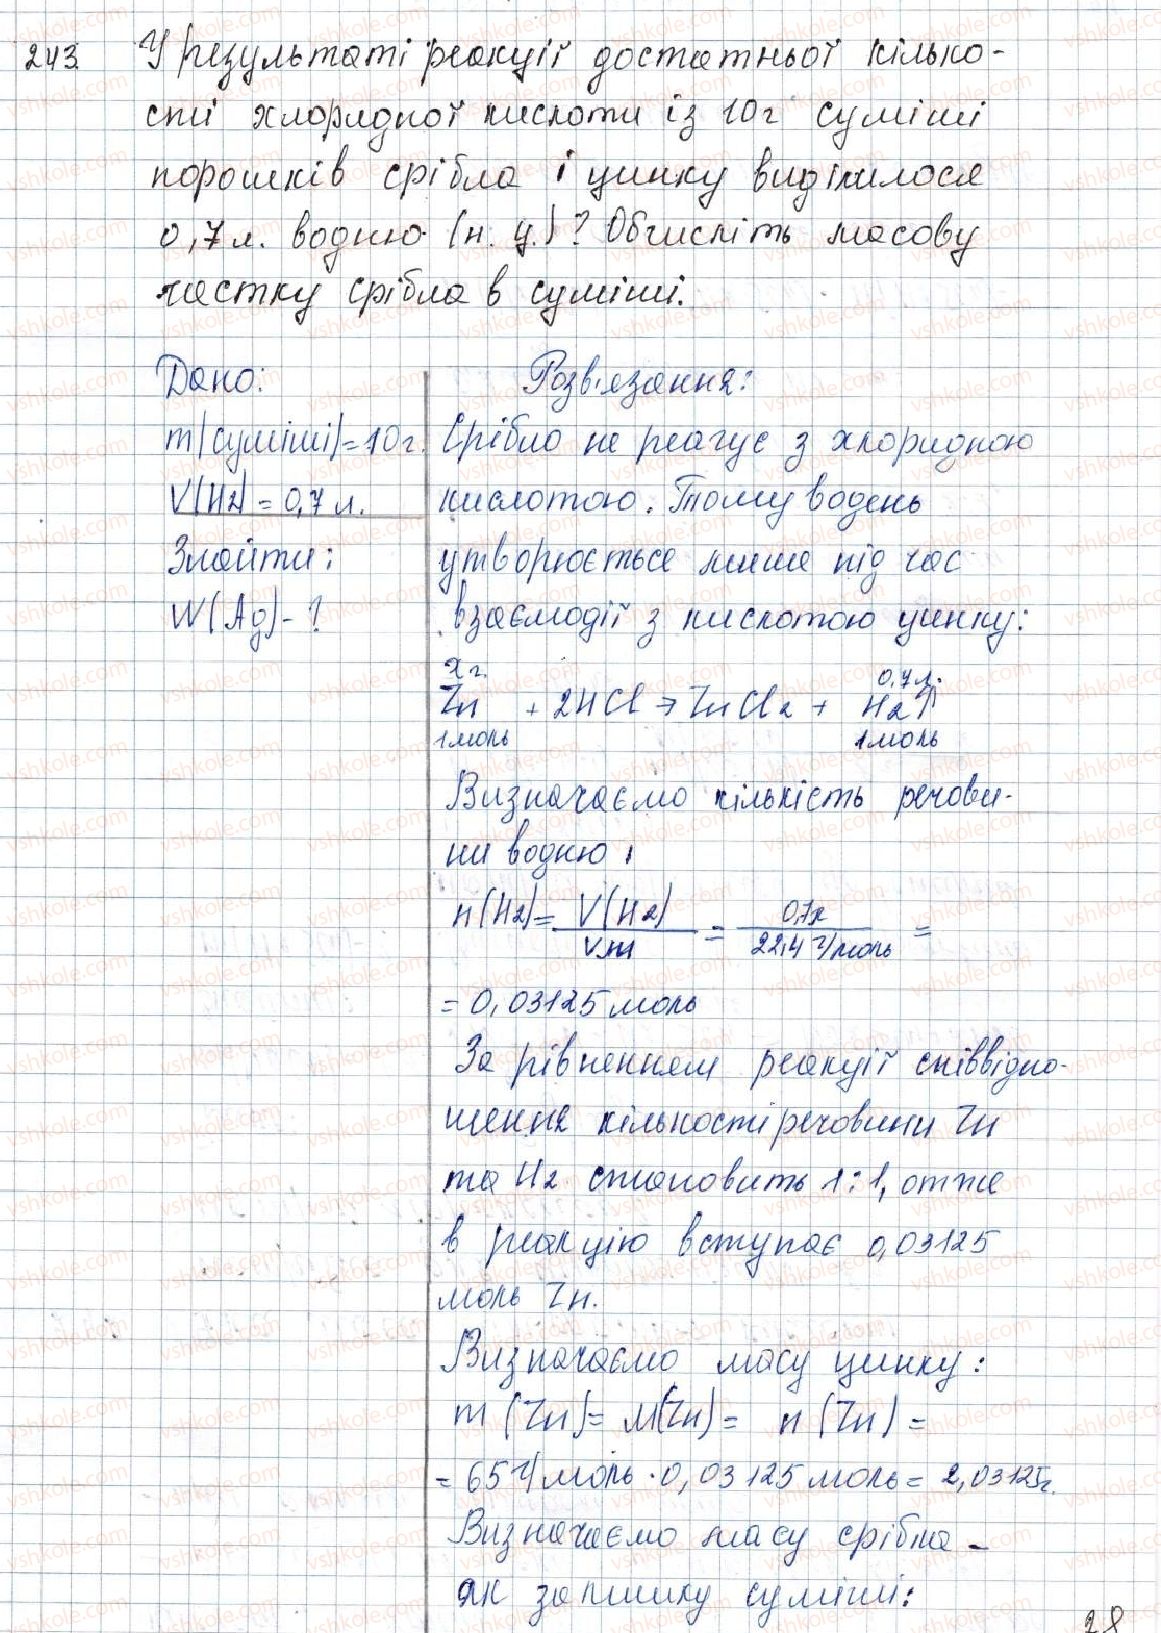 243. У результаті реакції достатньої кілько-
сті хлоридної кислоти із 10г суміші
порошків срібла і цинку виділилося
0,7л. водню (н. у.)? Обчисліть масову
частку срібла в суміші.
Дано:
m(суміші)=10г.
V(H2)=0,7л.
Знайти:
W(Ag)-?
Розв'язання:
Срібло не реагує з хлоридною
кислотою. Тому водень
утворюється лише під час
взаємодії з кислотою цинку:
xг. 0,7л.
Zn + 2HCl → ZnCl2 + H2↑
1моль 1моль
Визначаємо кількість речови-
ни водню:
n(H2)= V(H2)/Vm = 0,7л/22,4 г/моль =
= 0,03125 моль
За рівнянням реакції співвідно-
шення кількості речовини Zn
та H2 становить 1:1, отже
в реакцію вступає 0,03125
моль Zn.
Визначаємо масу цинку:
m (Zn)= M(Zn)= n (Zn) =
= 65 г/моль · 0,03125 моль = 2,03125г.
Визначаємо масу срібла -
як залишку суміші:
28